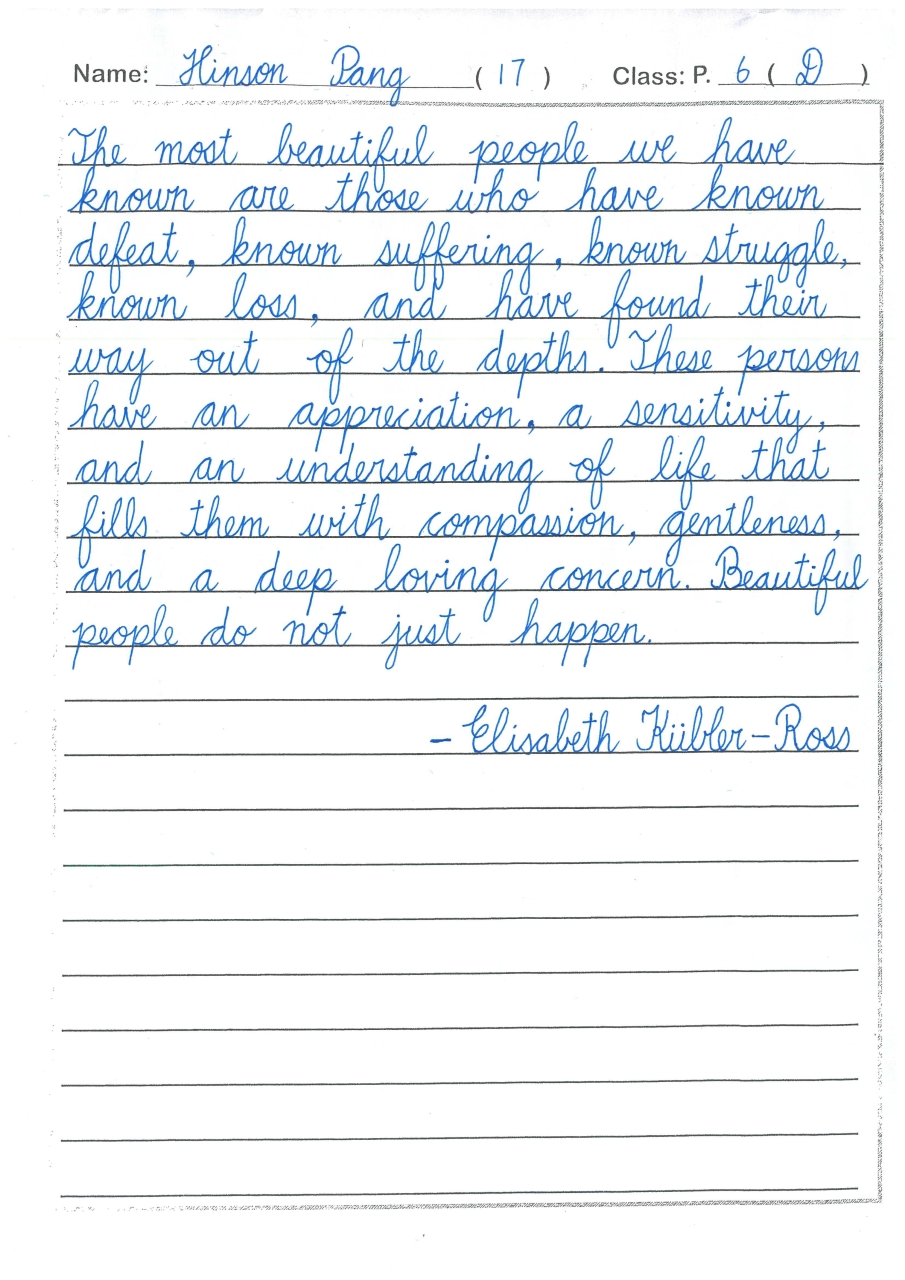 Name: Hinson Pang ( 17 ) Class: P. 6 ( D )
The most beautiful people we have
known are those who have known
defeat, known suffering, known struggle,
known loss, and have found their
way out of the depths. These persons
have an appreciation, a sensitivity,
and an understanding of life that
fills them with compassion, gentleness,
and a deep loving concern. Beautiful
people do not just happen.
– Elisabeth Kübler–Ross